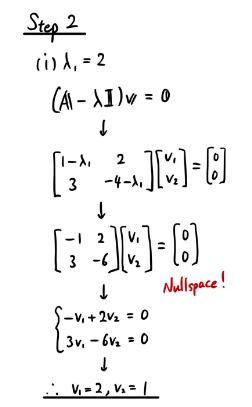 Step 2
(i) λ₁ = 2
(A - λI)v = 0
↓
[1-λ₁ 2; 3 -4-λ₁][v₁; v₂] = [0; 0]
↓
[-1 2; 3 -6][v₁; v₂] = [0; 0]
Nullspace!
↓
{-v₁ + 2v₂ = 0
3v₁ - 6v₂ = 0
↓
∴ v₁ = 2, v₂ = 1